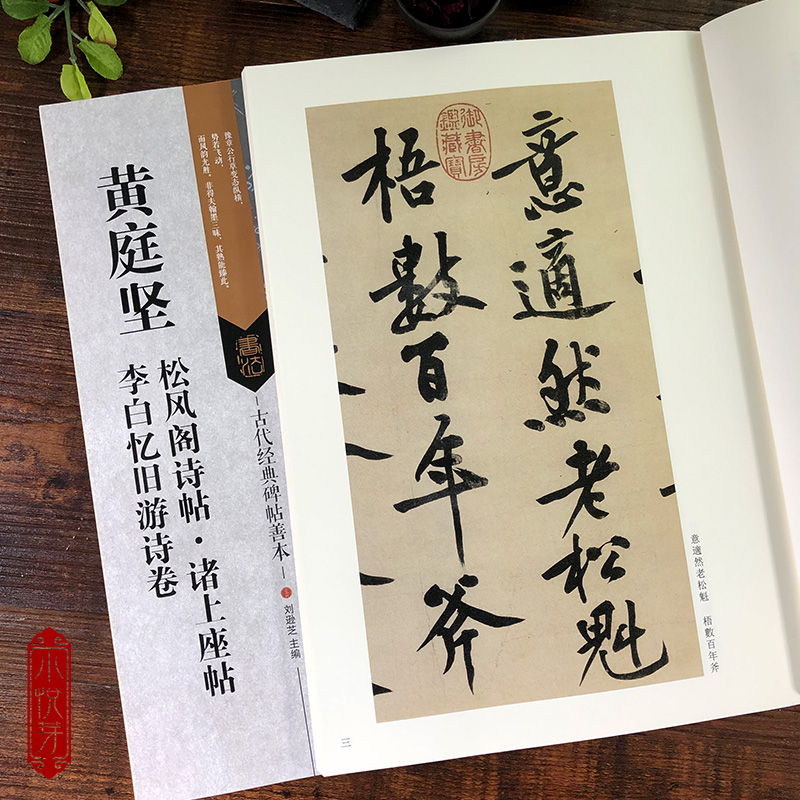 黄庭坚
松风阁诗帖·诸上座帖
李白忆旧游诗卷
豫章公行草变态纵横，
势若飞动，
而风韵尤胜。非得夫翰墨三昧，其孰能臻此。
書法
古代经典碑帖善本
刘逊芝 主编
意適然老松魁
梧數百年斧
御書房鑑藏寶
意適然老松魁 梧數百年斧
三
木悦芽